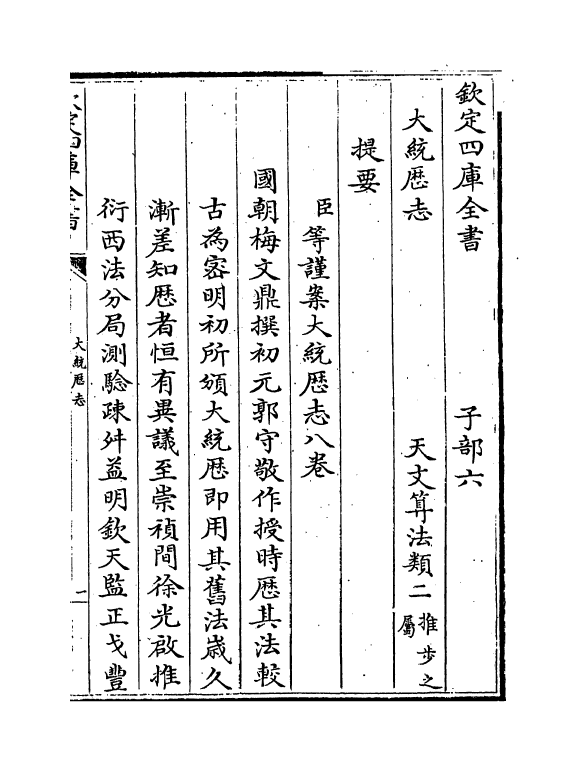 欽定四庫全書 子部六
大統厯志 天文算法類二推步之屬
提要
臣等謹案大統厯志八卷
國朝梅文鼎撰初元郭守敬作授時厯其法較
古為宻明初所頒大統厯即用其舊法嵗久
漸差知厯者恒有異議至崇禎間徐光啟推
衍西法分局測驗疎舛益明欽天監正戈豐
欽定四庫全書
大統厯志
一